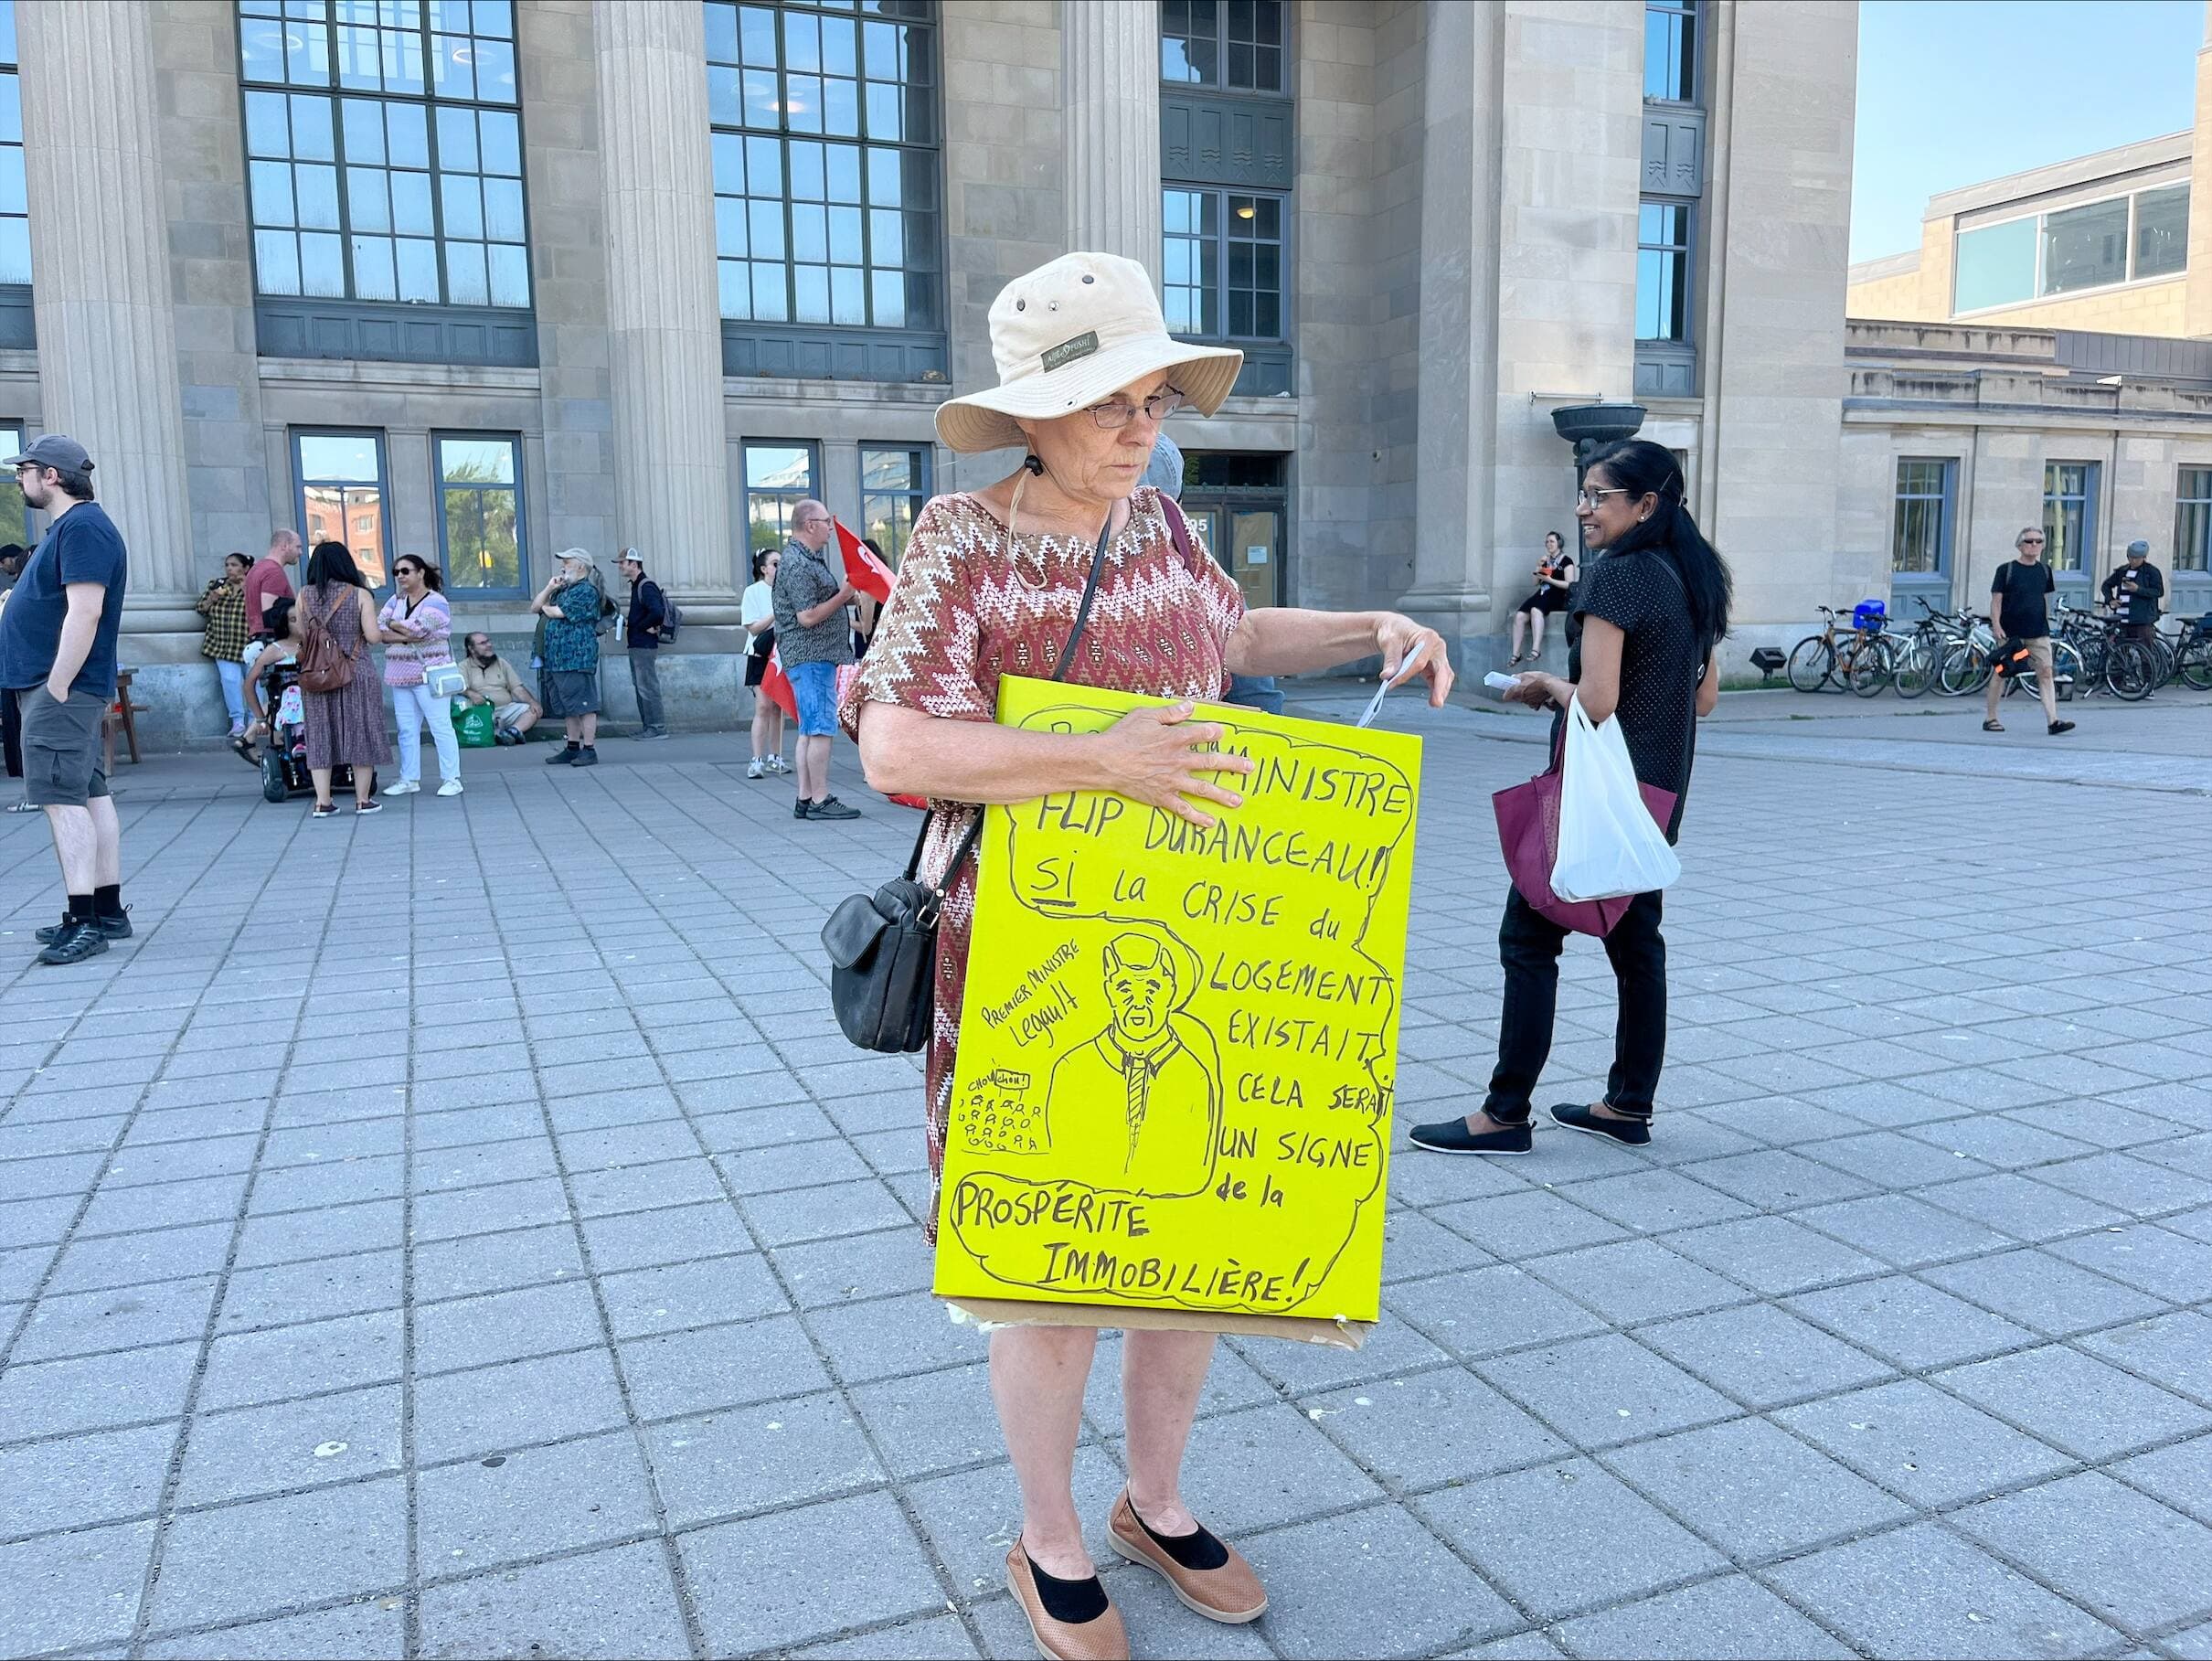 MINISTRE
FLIP DURANCEAU!
SI la CRISE du
LOGEMENT
EXISTAIT,
CELA SERAIT
UN SIGNE
de la
PROSPÉRITÉ
IMMOBILIÈRE!
PREMIER MINISTRE
Legault
CHOU CHOU!
95